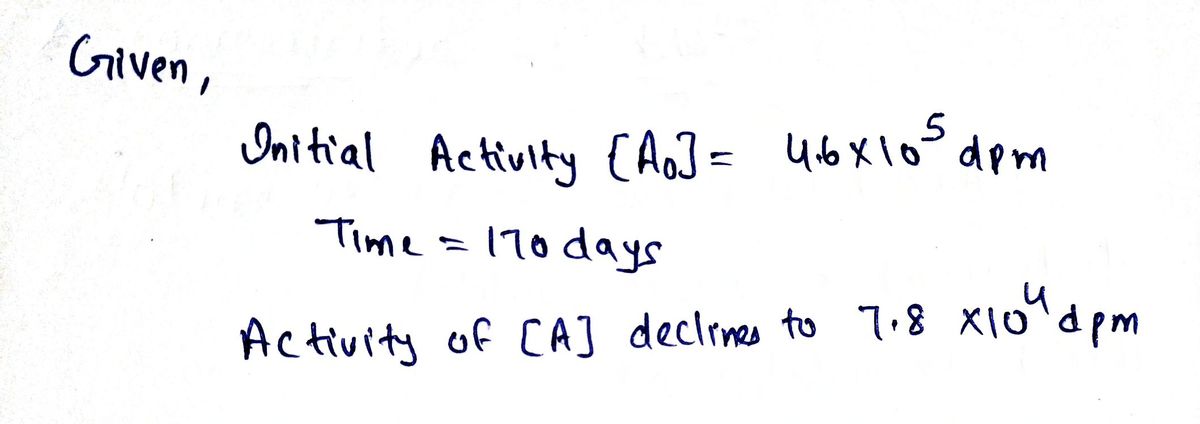 Given,
Initial Activity [A₀] = 4.6×10⁵ dpm
Time = 170 days
Activity of [A] declines to 7.8 ×10⁴ dpm